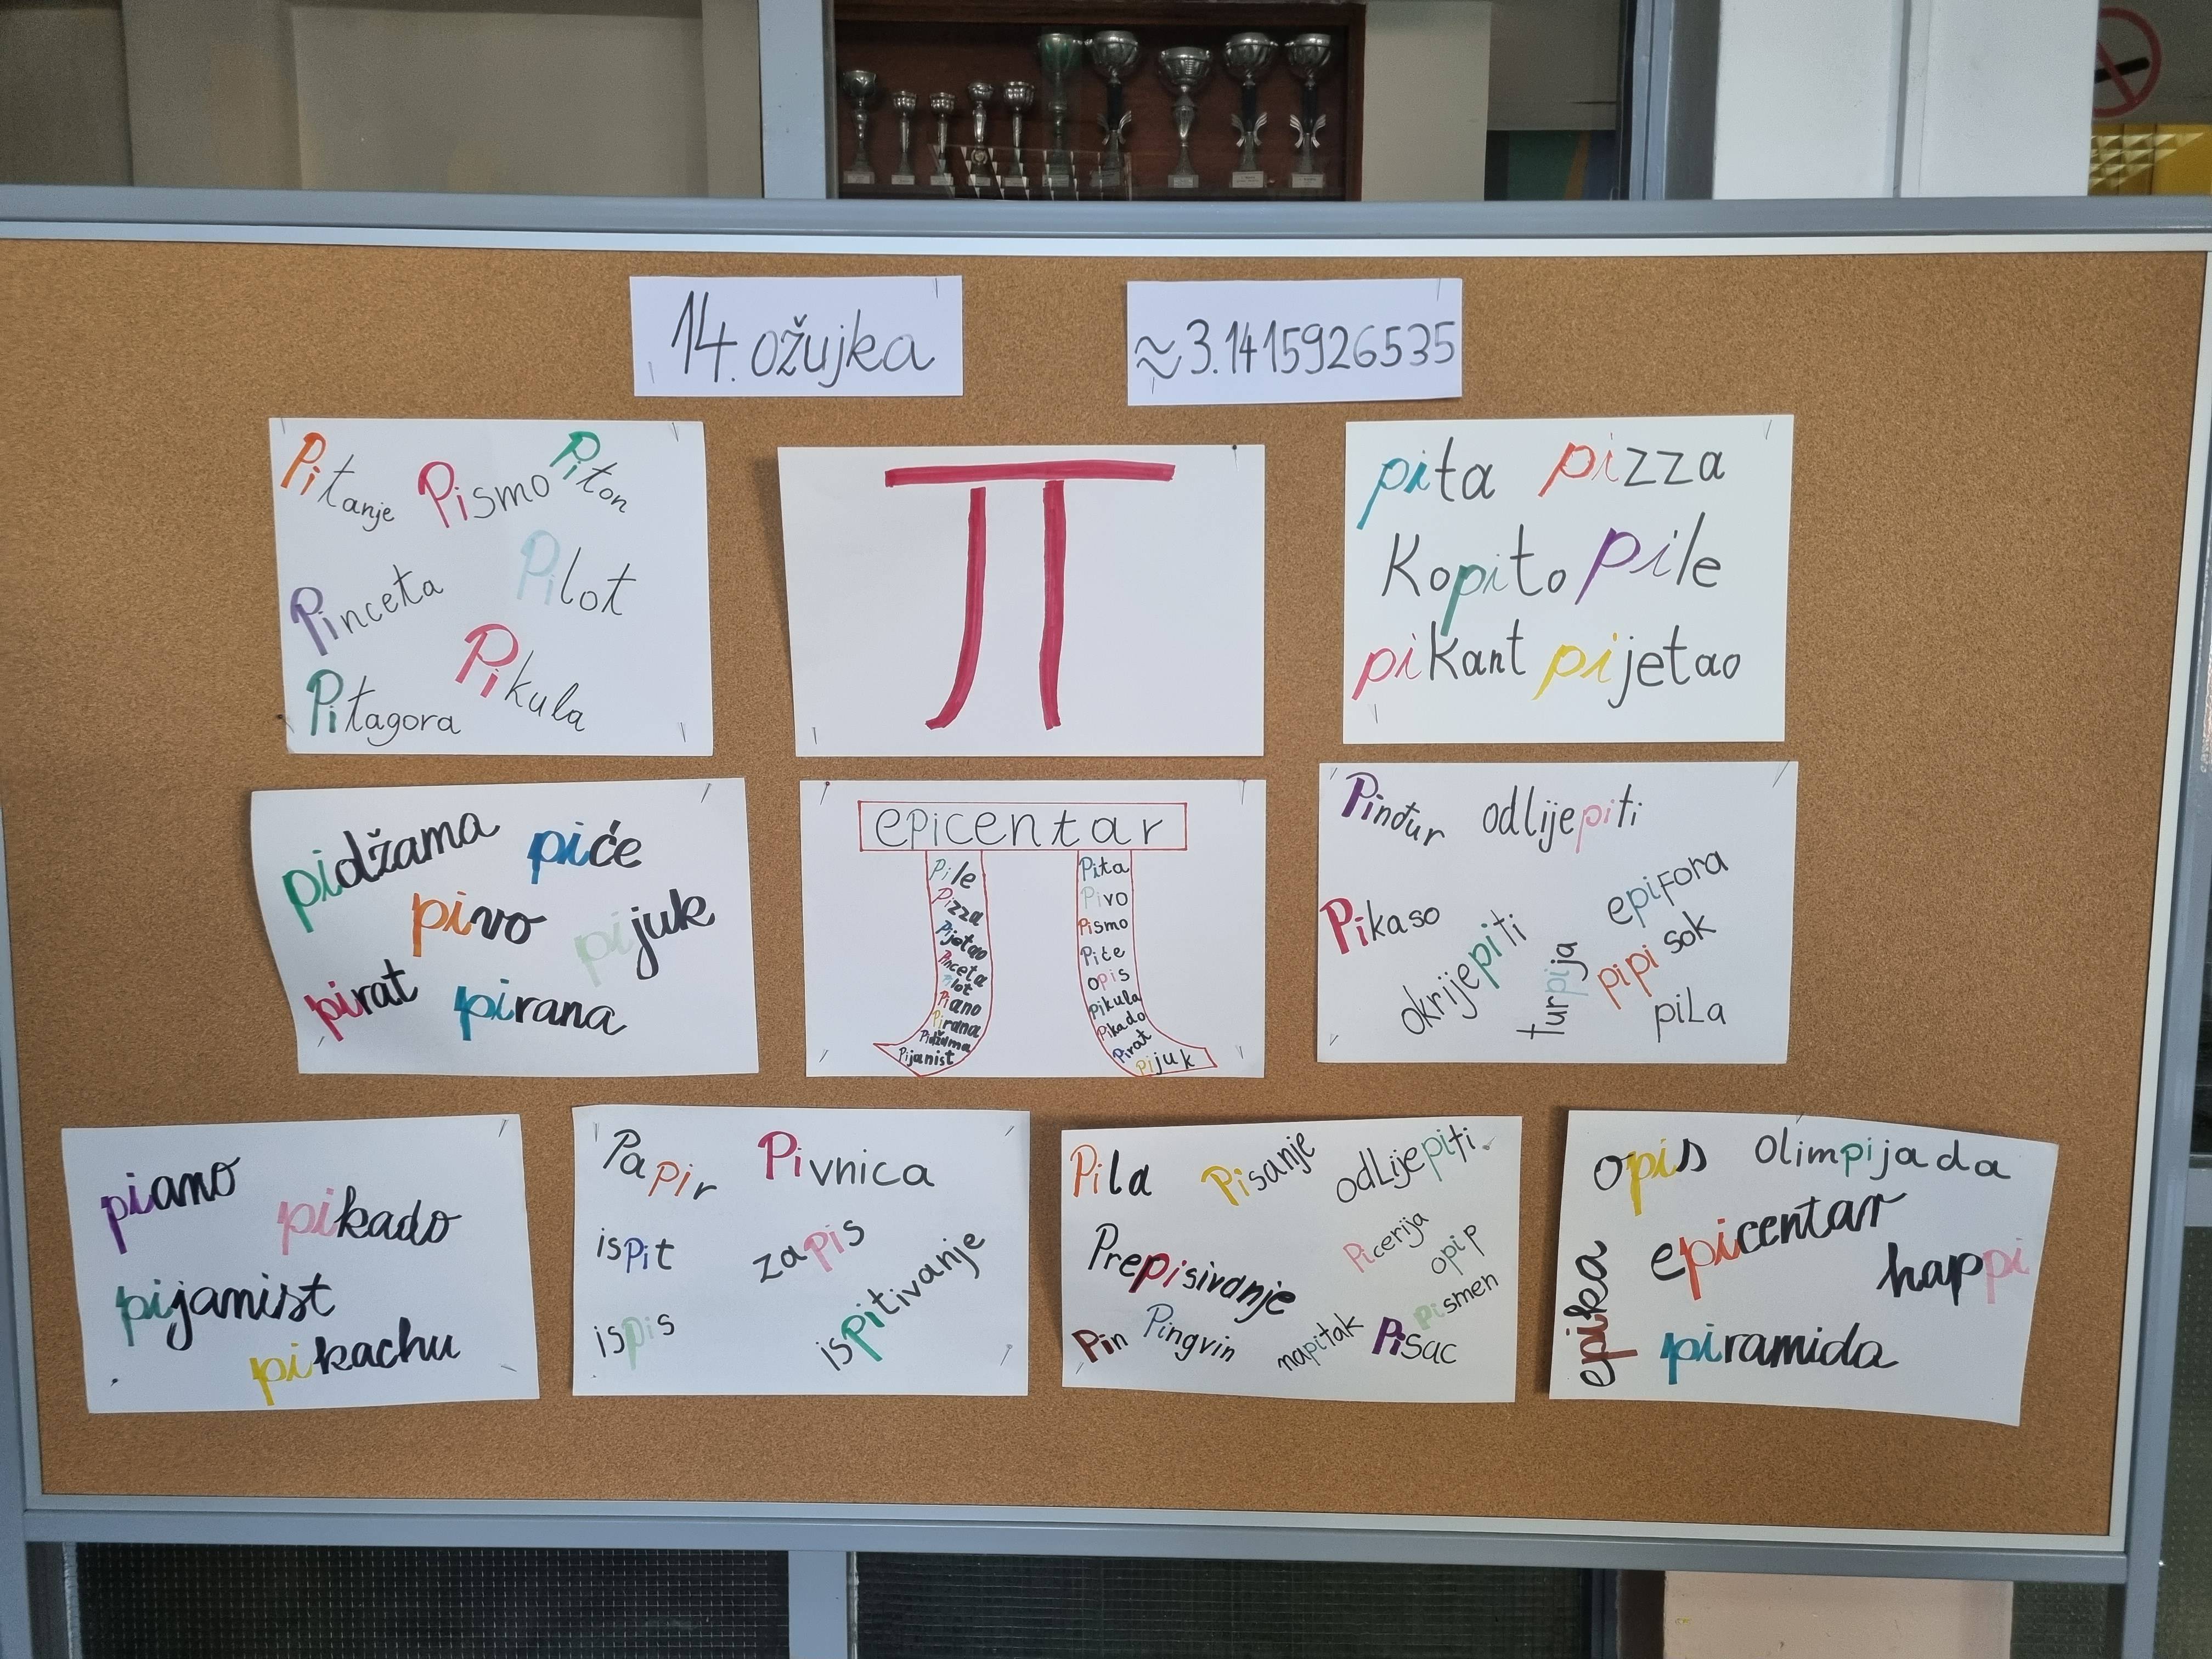 14. ožujka
≈3.1415926535
Pitanje Pismo Piton
Pinceta Pilot
Pitagora Pikula
π
pita pizza
Kopito pile
pikant pijetao
pidžama piće
pivo pijuk
pirat pirana
epicentar
Pile
Pizza
Pijetao
Pinceta
Pilot
Piano
Pirana
Pidžama
Pijanist
Pita
Pivo
Pismo
Piće
opis
pikula
Pikado
Pirat
pijuk
Pinđur odlijepiti
Pikaso epifora
okrijepiti turpija pipi sok
piLa
piano
pikado
pijanist
pikachu
Papir Pivnica
isPit zapis
ispis ispitivanje
Pila Pisanje odLijepiti.
Prepisivanje Picerija opip
Pin Pingvin napitak Pisac pismen
opis Olimpijada
epicentar
happi
epika piramida